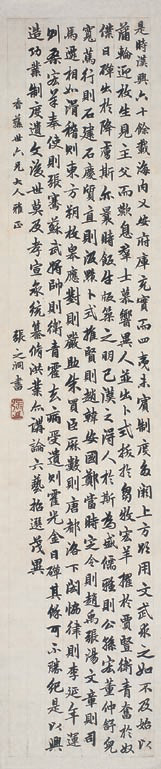 是時漢興六十餘載海內乂安府庫充實而四夷未賓制度多闕上方欲用文武求之如不及始以
蒲輪迎枚生見主父而歎息群士慕嚮異人並出卜式拔於芻牧弘羊擢於賈豎衛青奮於奴
僕日磾出於降虜斯亦曩時飯牛版築之朋已漢之得人於斯為盛儒雅則公孫弘董仲舒兒
寬篤行則石建石慶質直則汲黯卜式推賢則韓安國鄭當時定令則趙禹張湯文章則司
馬遷相如滑稽則東方朔枚皋應對則嚴助朱買臣歷數則唐都洛下閎協律則李延年運
籌則桑弘羊奉使則張騫蘇武將帥則衛青霍去病受遺則霍光金日磾其餘不可勝紀是以興
造功業制度遺文後世莫及孝宣承統纂修洪業亦講論六藝招選茂異
香蓀世六兄大人雅正
張之洞書